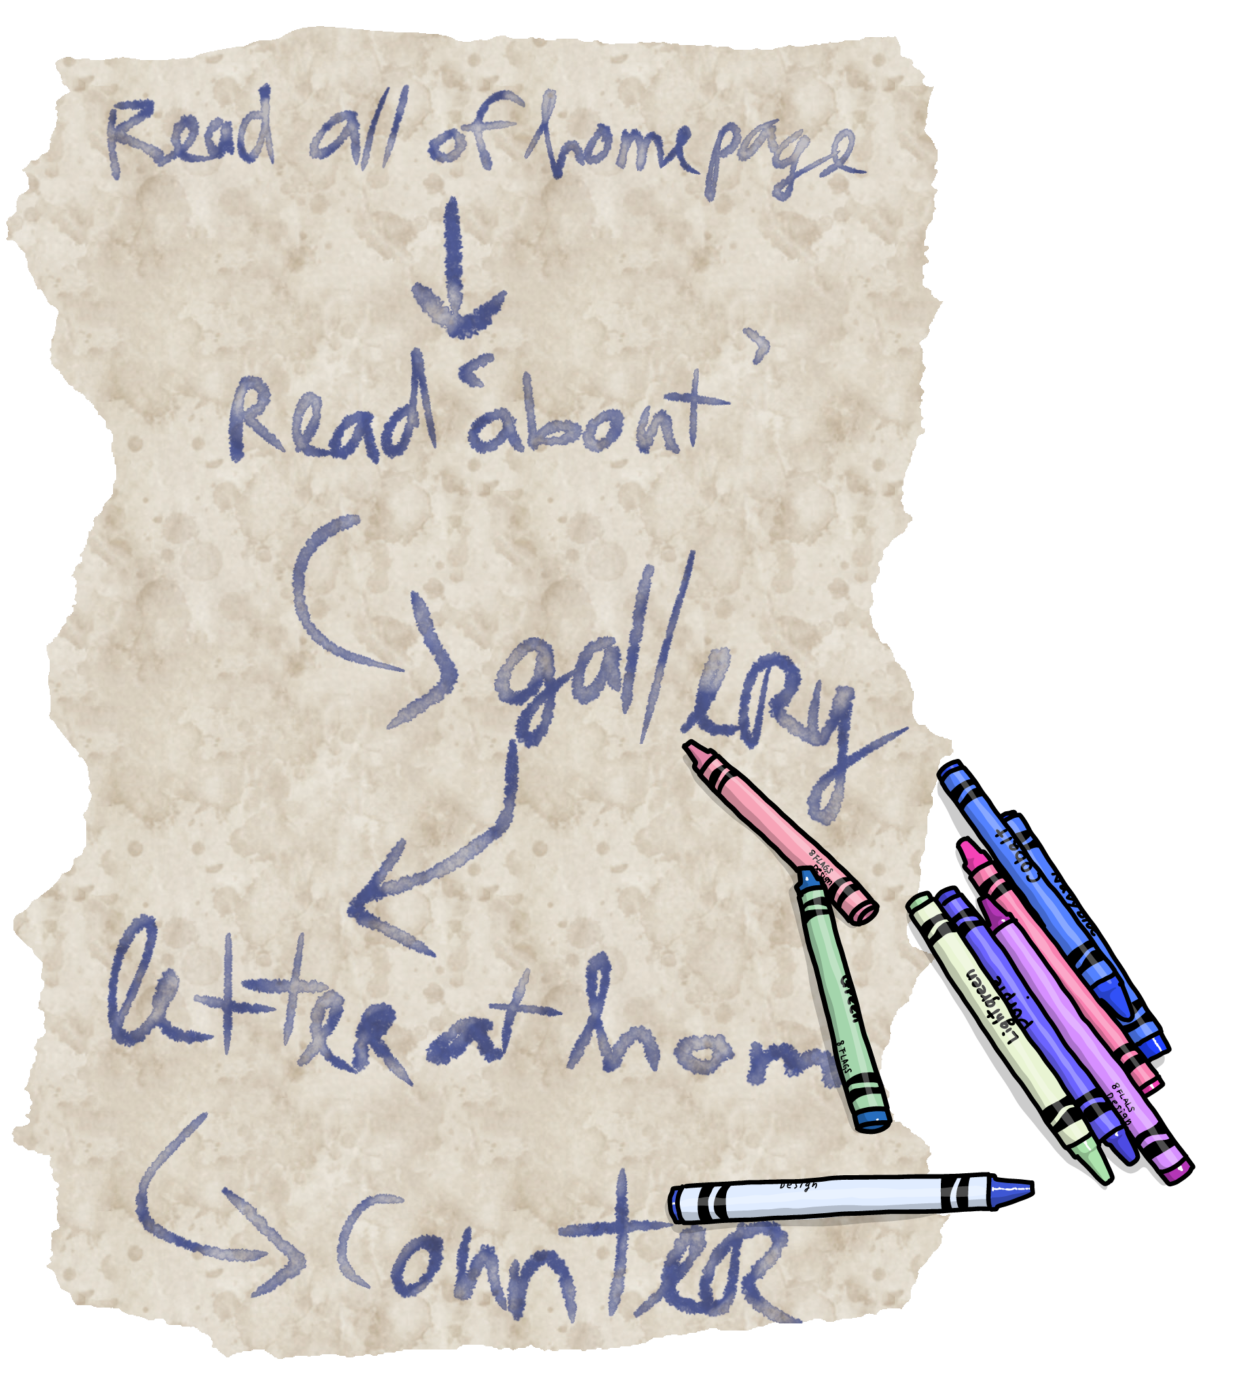 Read all of homepage
Read ‹about›
gallery
letter at hom
counter
8 FLAGS
Design
Green
8 FLAGS
Cobalt
Lightgreen
purple
8 FLAGS
Design
Design